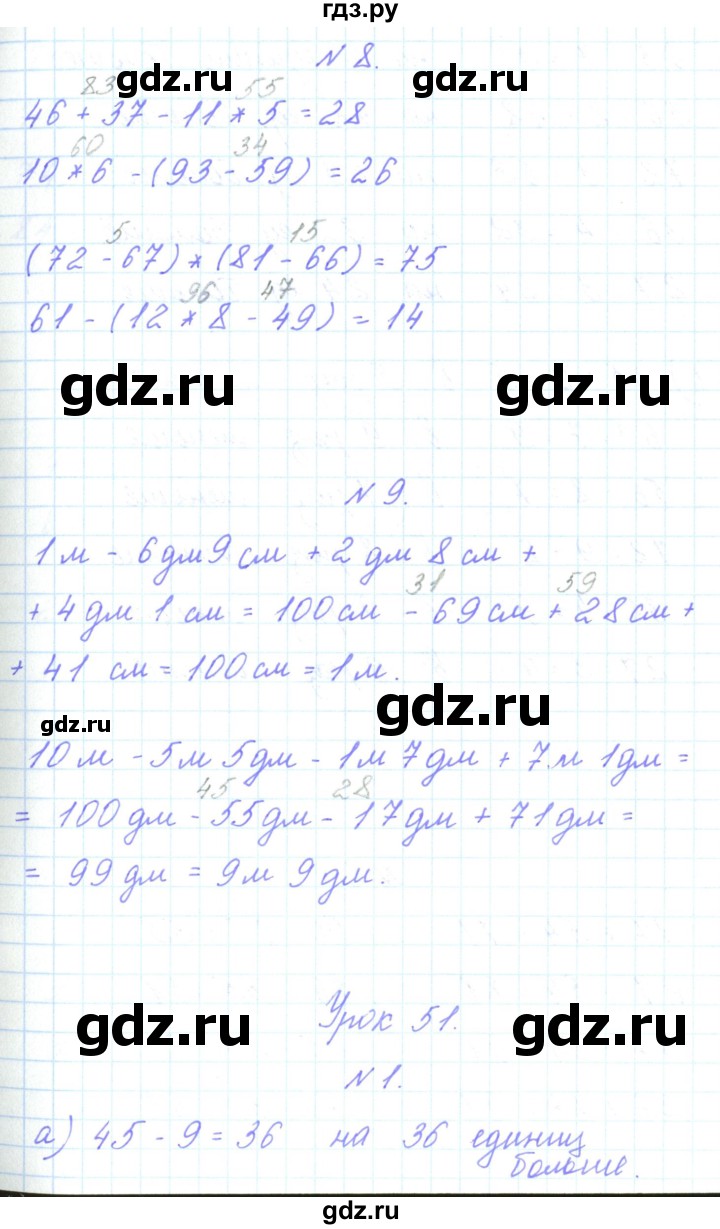 гдз.ру
N 8.
gdz.ru gdz.ru
83 55
46 + 37 - 11 * 5 = 28
60 34
10 * 6 - (93 - 59) = 26
5 15
(72 - 67) * (81 - 66) = 75
96 47
61 - (12 * 8 - 49) = 14
gdz.ru gdz.ru
N 9.
1 м - 6 дм 9 см + 2 дм 8 см +
31 59
+ 4 дм 1 см = 100 см - 69 см + 28 см +
+ 41 см = 100 см = 1 м.
gdz.ru gdz.ru
10 м - 5 м 5 дм - 1 м 7 дм + 7 м 1 дм =
45 28
= 100 дм - 55 дм - 17 дм + 71 дм =
= 99 дм = 9 м 9 дм.
Урок 51.
gdz.ru gdz.ru
N 1.
а) 45 - 9 = 36 на 36 единиц
больше.
gdz.ru